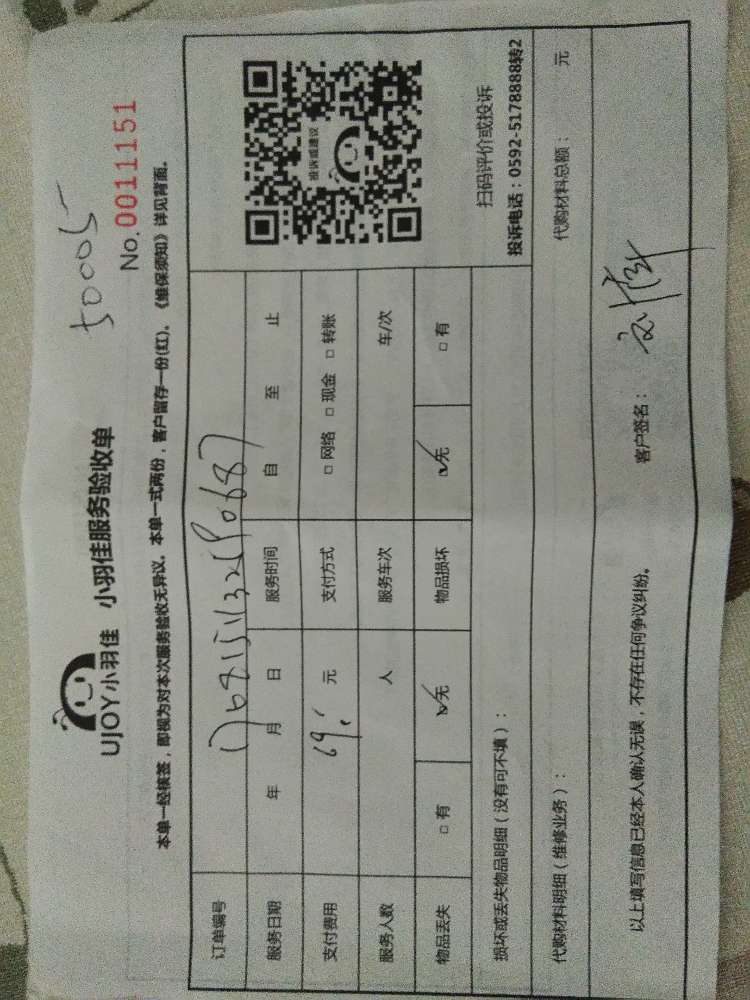 50005
UJOY小羽佳 小羽佳服务验收单 No.0011151
本单一经核签，即视为对本次服务验收无异议。本单一式两份，客户留存一份(红)。《维保须知》详见背面。
订单编号
服务日期 年 月 日 服务时间 自 至 止
支付费用 元 支付方式 □ 网络 □ 现金 □ 转账
服务人数 人 服务车次 车/次
物品丢失 □ 有 □ 无 物品损坏 □ 无 □ 有
投诉或建议
扫码评价或投诉
投诉电话：0592-5178888转2
损坏或丢失物品明细（没有可不填）：
代购材料明细（维修业务）： 代购材料总额： 元
以上填写信息已经本人确认无误，不存在任何争议纠纷。 客户签名：